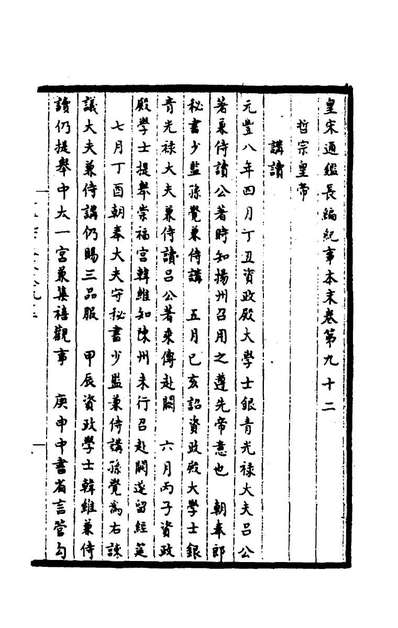 皇宋通鑑長編紀事本末卷第九十二
哲宗皇帝
講讀
元豐八年四月丁丑資政殿大學士銀青光祿大夫呂公
著兼侍讀公著時知揚州召用之遵先帝意也 朝奉郎
秘書少監孫覺兼侍講 五月己亥詔資政殿大學士銀
青光祿大夫兼侍讀呂公著乘傳赴闕 六月丙子資政
殿學士提舉崇福宮韓維知陳州未行召赴闕遂留經筵
七月丁酉朝奉大夫守秘書少監兼侍講孫覺為右諫
議大夫兼侍講仍賜三品服 甲辰資政學士韓維兼侍
讀仍提舉中太一宮兼集禧觀事 庚申中書省言管勾